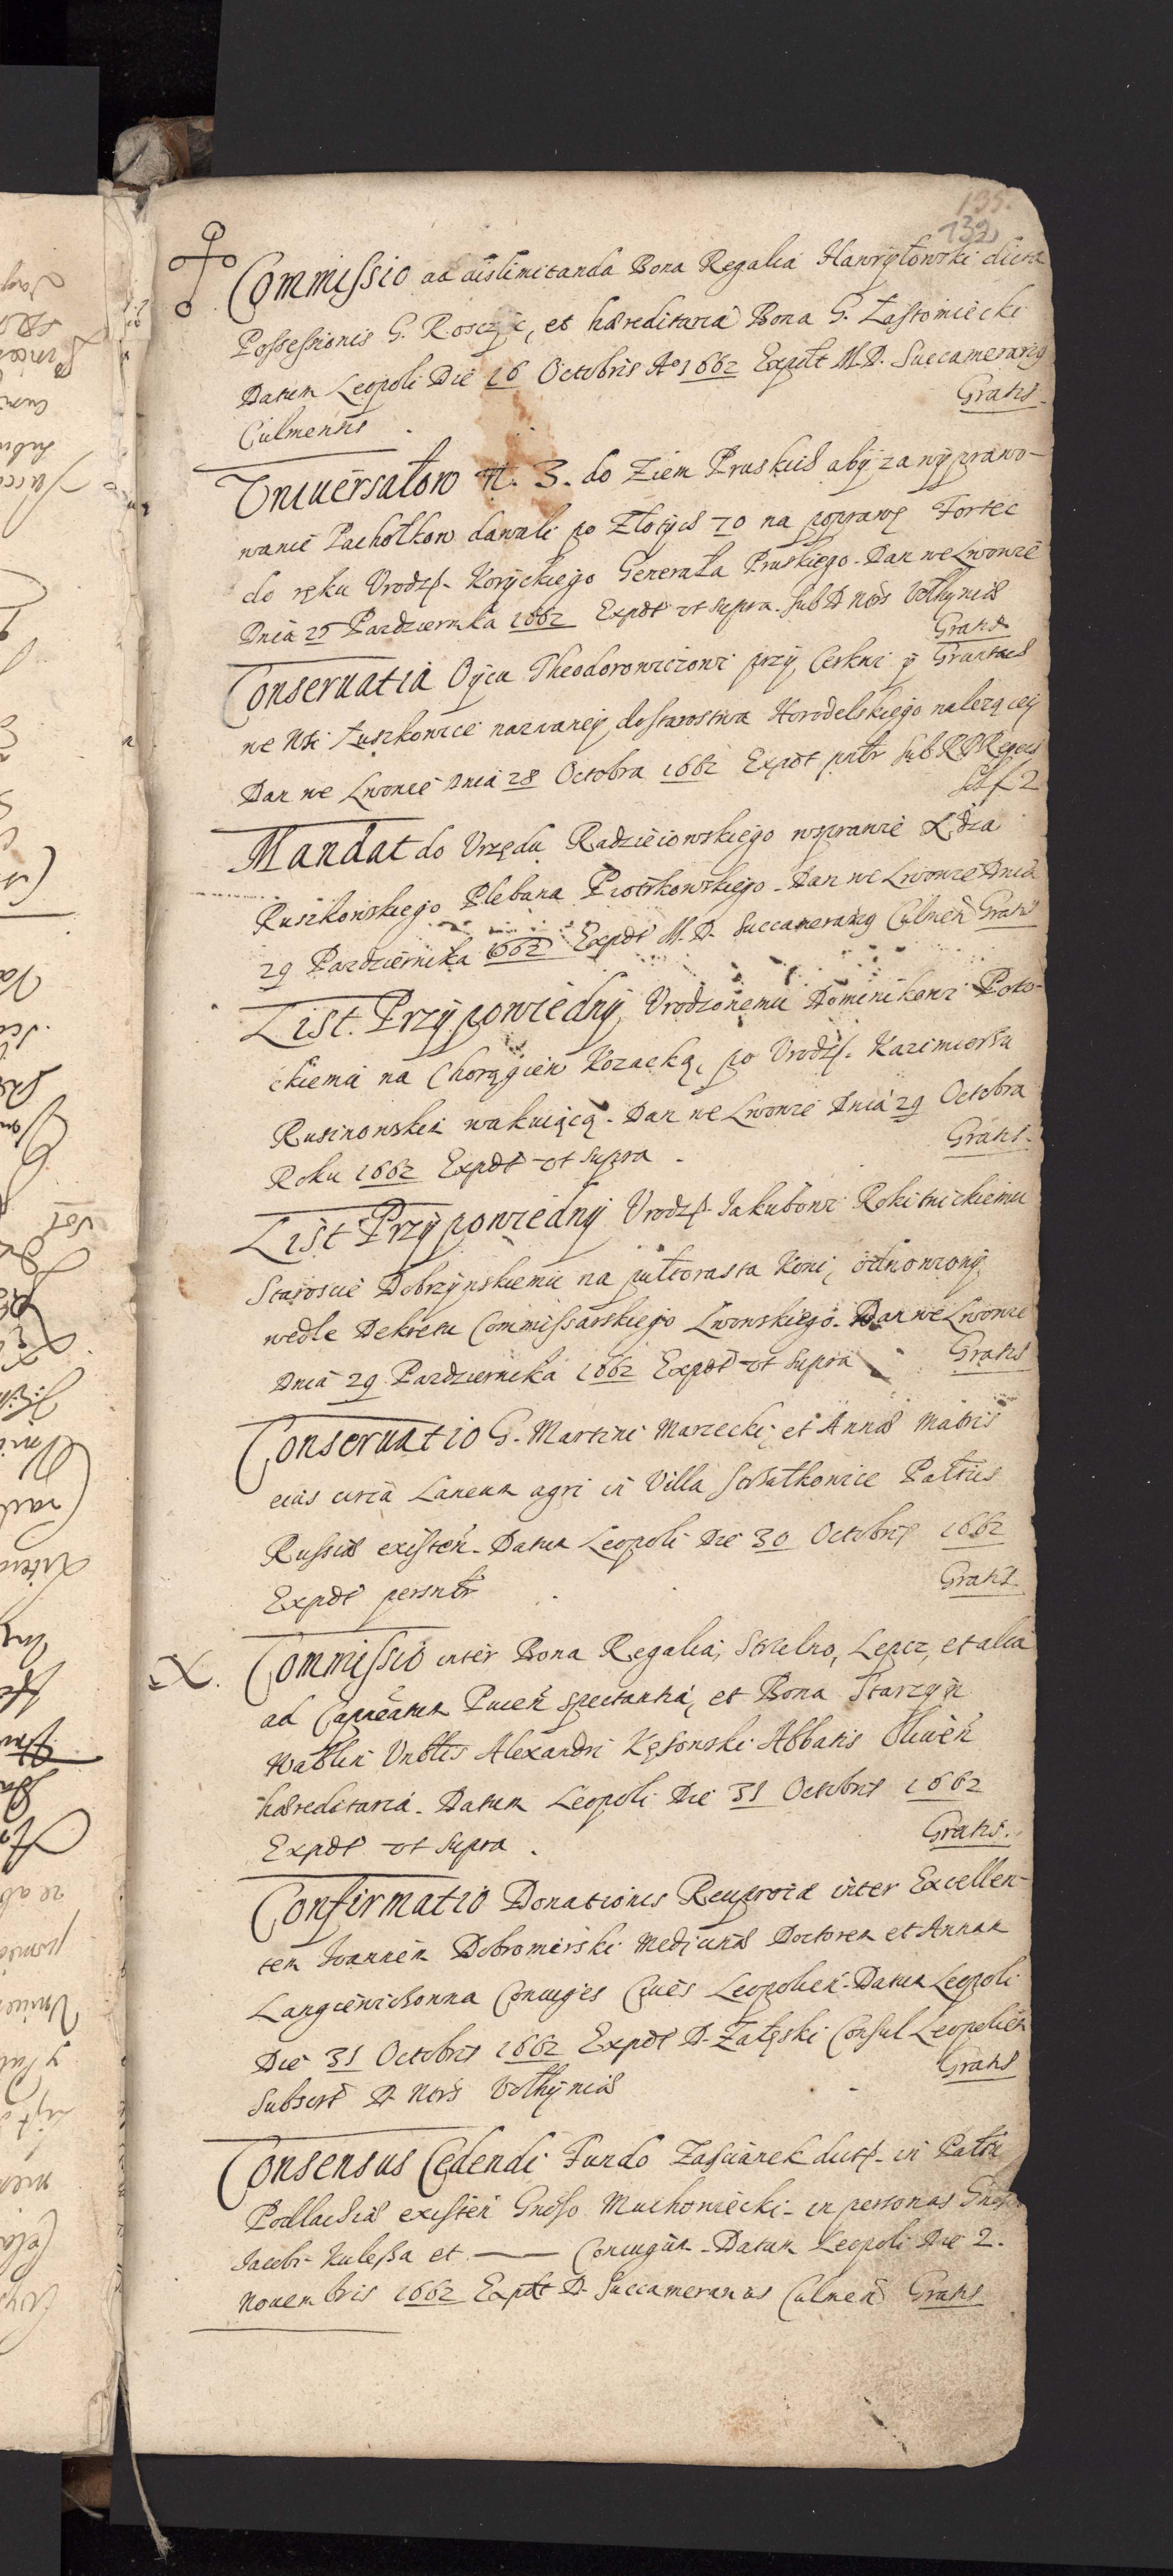 135.
132
Commissio ad dislimitanda Bona Regalia Hawryłowski dicta
Possessionis G. Rosczyc, et hæreditaria Bona G. Łastowiecki
Datum Leopoli Die 16 Octobris Aº 1662 Expdt M. D. Succamerarig
Culmensis Gratis
Uniuersałow n. 3. do Ziem Pruskich aby za wyprawo-
wanie Pachołkow dawali po Złotych 70 na poprawę Fortec
do ręku Urodz. Koryckiego Generała Pruskiego. Dan we Lwowie
Dnia 25 Pazdziernika 1662 Expdt ut supra. Sub D Nors Volhyniæ
Gratis
Conseruatia Oyca Theodorowiczowi przy Cerkwi y Gruntach
we Wsi Łuszkowice nazwaney do starostwa Horodelskiego nalezącey
Dan we Lwowie Dnia 28 Octobra 1662 Expdt pntr Sub R P Regens
Sol f 2
Mandat do Urzędu Radzieiowskiego wsprawie Xdza
Ruszkowskiego Plebana Piotrkowskiego. Dan we Lwowie Dnia
29 Pazdziernika 1662 Expdt M. D. Succamerarig Culmen Gratis
List Przypowiedny Urodzonemu Dominikowi Poto-
ckiemu na Chorągiew Kozacką, po Urodz. Kazimierzu
Rusinowskim wakuiącą. Dan we Lwowie Dnia 29 Octobra
Roku 1662 Expdt ut supra. Gratis.
List Przypowiedny Urodz. Jakubowi Rokitnickiemu
Staroscie Dobrzynskiemu na pułtorasta Koni, odnowiony
wedle Dekretu Commissarskiego Lwowskiego. Dan we Lwowie
Dnia 29 Pazdziernika 1662 Expdt ut supra Gratis
Conseruatio G. Martini Marzecki et Annæ Matris
eius circa Laneum agri in Villa Strzałkowice Pałtus
Russiæ existen. Datum Leopoli Die 30 Octobris 1662
Expdt persntr Gratis
X. Commissio inter Bona Regalia, Strzelno, Lepcz, et alia
ad Capneatum Pucen spectantia, et Bona Starzyn
Wablin Vnblis Alexandri Kęsowski Abbatis Oliuen
hæreditaria. Datum Leopoli Die 31 Octobris 1662
Expdt ut supra. Gratis.
Confirmatio Donationis Reuprocæ inter Excellen-
tem Joannem Dobromirski Medicinæ Doctorem et Annam
Langienichowna Coniuges Ciues Leopolien. Datum Leopoli
Die 31 Octobris 1662 Expdt D. Załęski Consul Leopolien
Subscrt D Nors Volhyniæ Gratis
Consensus Cedendi Fundo Zascianek dict. in Pałtu
Podlachiæ existen Gnoso Muchowiecki. in personas Gnos
Jacobi Kulessa et —— Coniugum. Datum Leopoli Die 2.
Nouembris 1662 Expdt D. Succamerarius Culmen Gratis